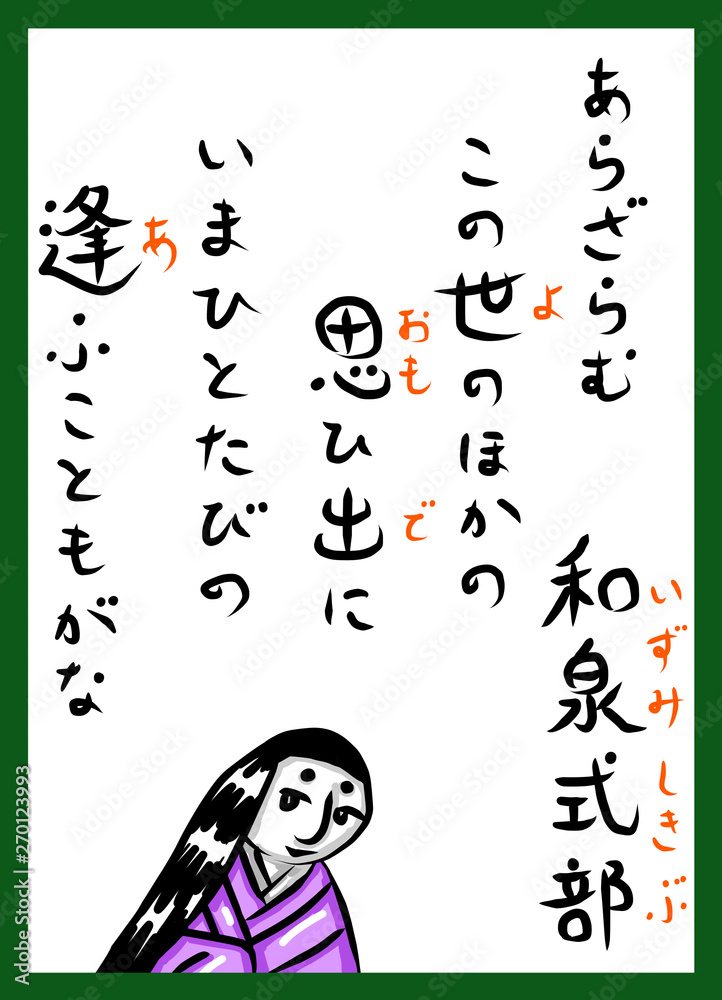 あらざらむ
和泉式部
いずみしきぶ
この世のほかの
よ
思ひ出に
おも
で
いまひとたびの
逢ふこともがな
あ
Adobe Stock
Adobe Stock | #270123993